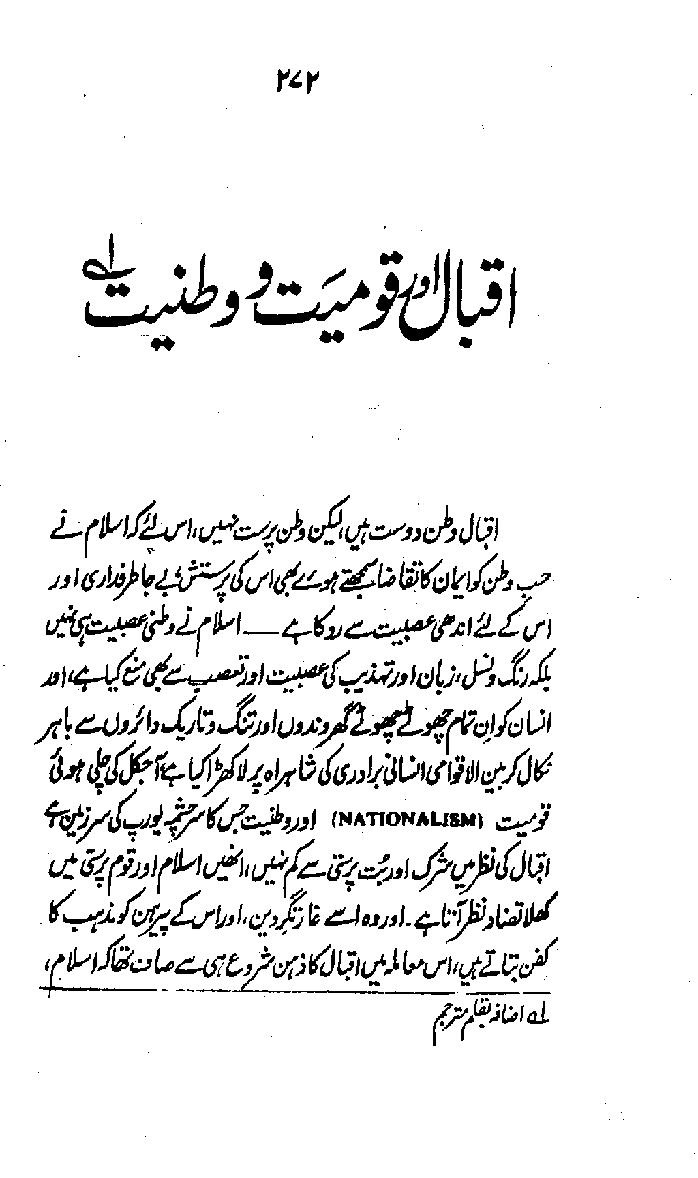 ۲۷۲
اقبال اور قومیت و وطنیت لہ
اقبال وطن دوست ہیں، لیکن وطن پرست نہیں، اس لئے کہ اسلام نے
حب وطن کو ایمان کا تقاضا سمجھتے ہوئے بھی اس کی پرستش، بے جا طرفداری اور
اس کے لئے اندھی عصبیت سے روکا ہے — اسلام نے وطنی عصبیت ہی نہیں
بلکہ رنگ و نسل، زبان اور تہذیب کی عصبیت اور تعصب سے بھی منع کیا ہے، اور
انسان کو ان تمام چھوٹے چھوٹے گھروندوں اور تنگ و تاریک دائروں سے باہر
نکال کر بین الاقوامی انسانی برادری کی شاہراہ پر لا کھڑا کیا ہے، آجکل کی چلی ہوئی
قومیت (NATIONALISM) اور وطنیت جس کا سرچشمہ یورپ کی سرزمین ہے
اقبال کی نظر میں شرک اور بُت پرستی سے کم نہیں، انھیں اسلام اور قوم پرستی میں
کھلا تضاد نظر آتا ہے۔ اور وہ اسے غارتگر دین، اور اس کے پیرہن کو مذہب کا
کفن بتاتے ہیں، اس معاملہ میں اقبال کا ذہن شروع ہی سے صاف تھا کہ اسلام،
لہ اضافہ بقلم مترجم